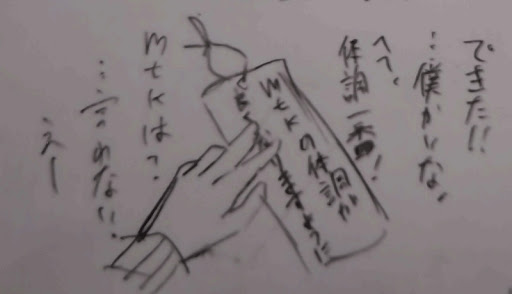 できた!!
…僕かいな。
へへ、
体調一番!
mtkの体調が
ますように
mtkは?
…言わない。
えー